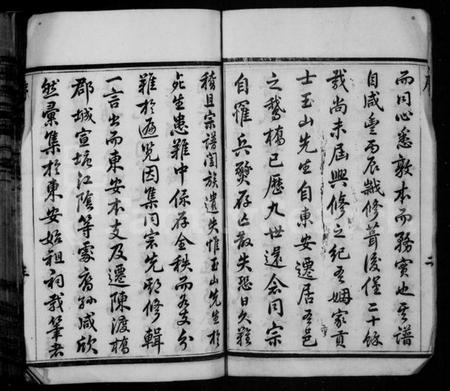 而同心悉敦本而務實也吾譜
自咸豐丙辰𥿄修葺後僅二十餘
載尚未屆興修之紀吾姻家貢
士玉山先生自東安遷居吾邑
之鵝橋已歷九世還念同宗
自罹兵燹存亡散失恐日久難
稽且宗譜闔族遺失惟玉山先生於
死生患難中保存全秩而各支分
難於遍覽因集同宗先期修輯
一言出而東安本支及遷陳渡橋
郡城宣塘江陰等處裔孫咸欣
然彙集於東安始祖祠載筆者
序
二